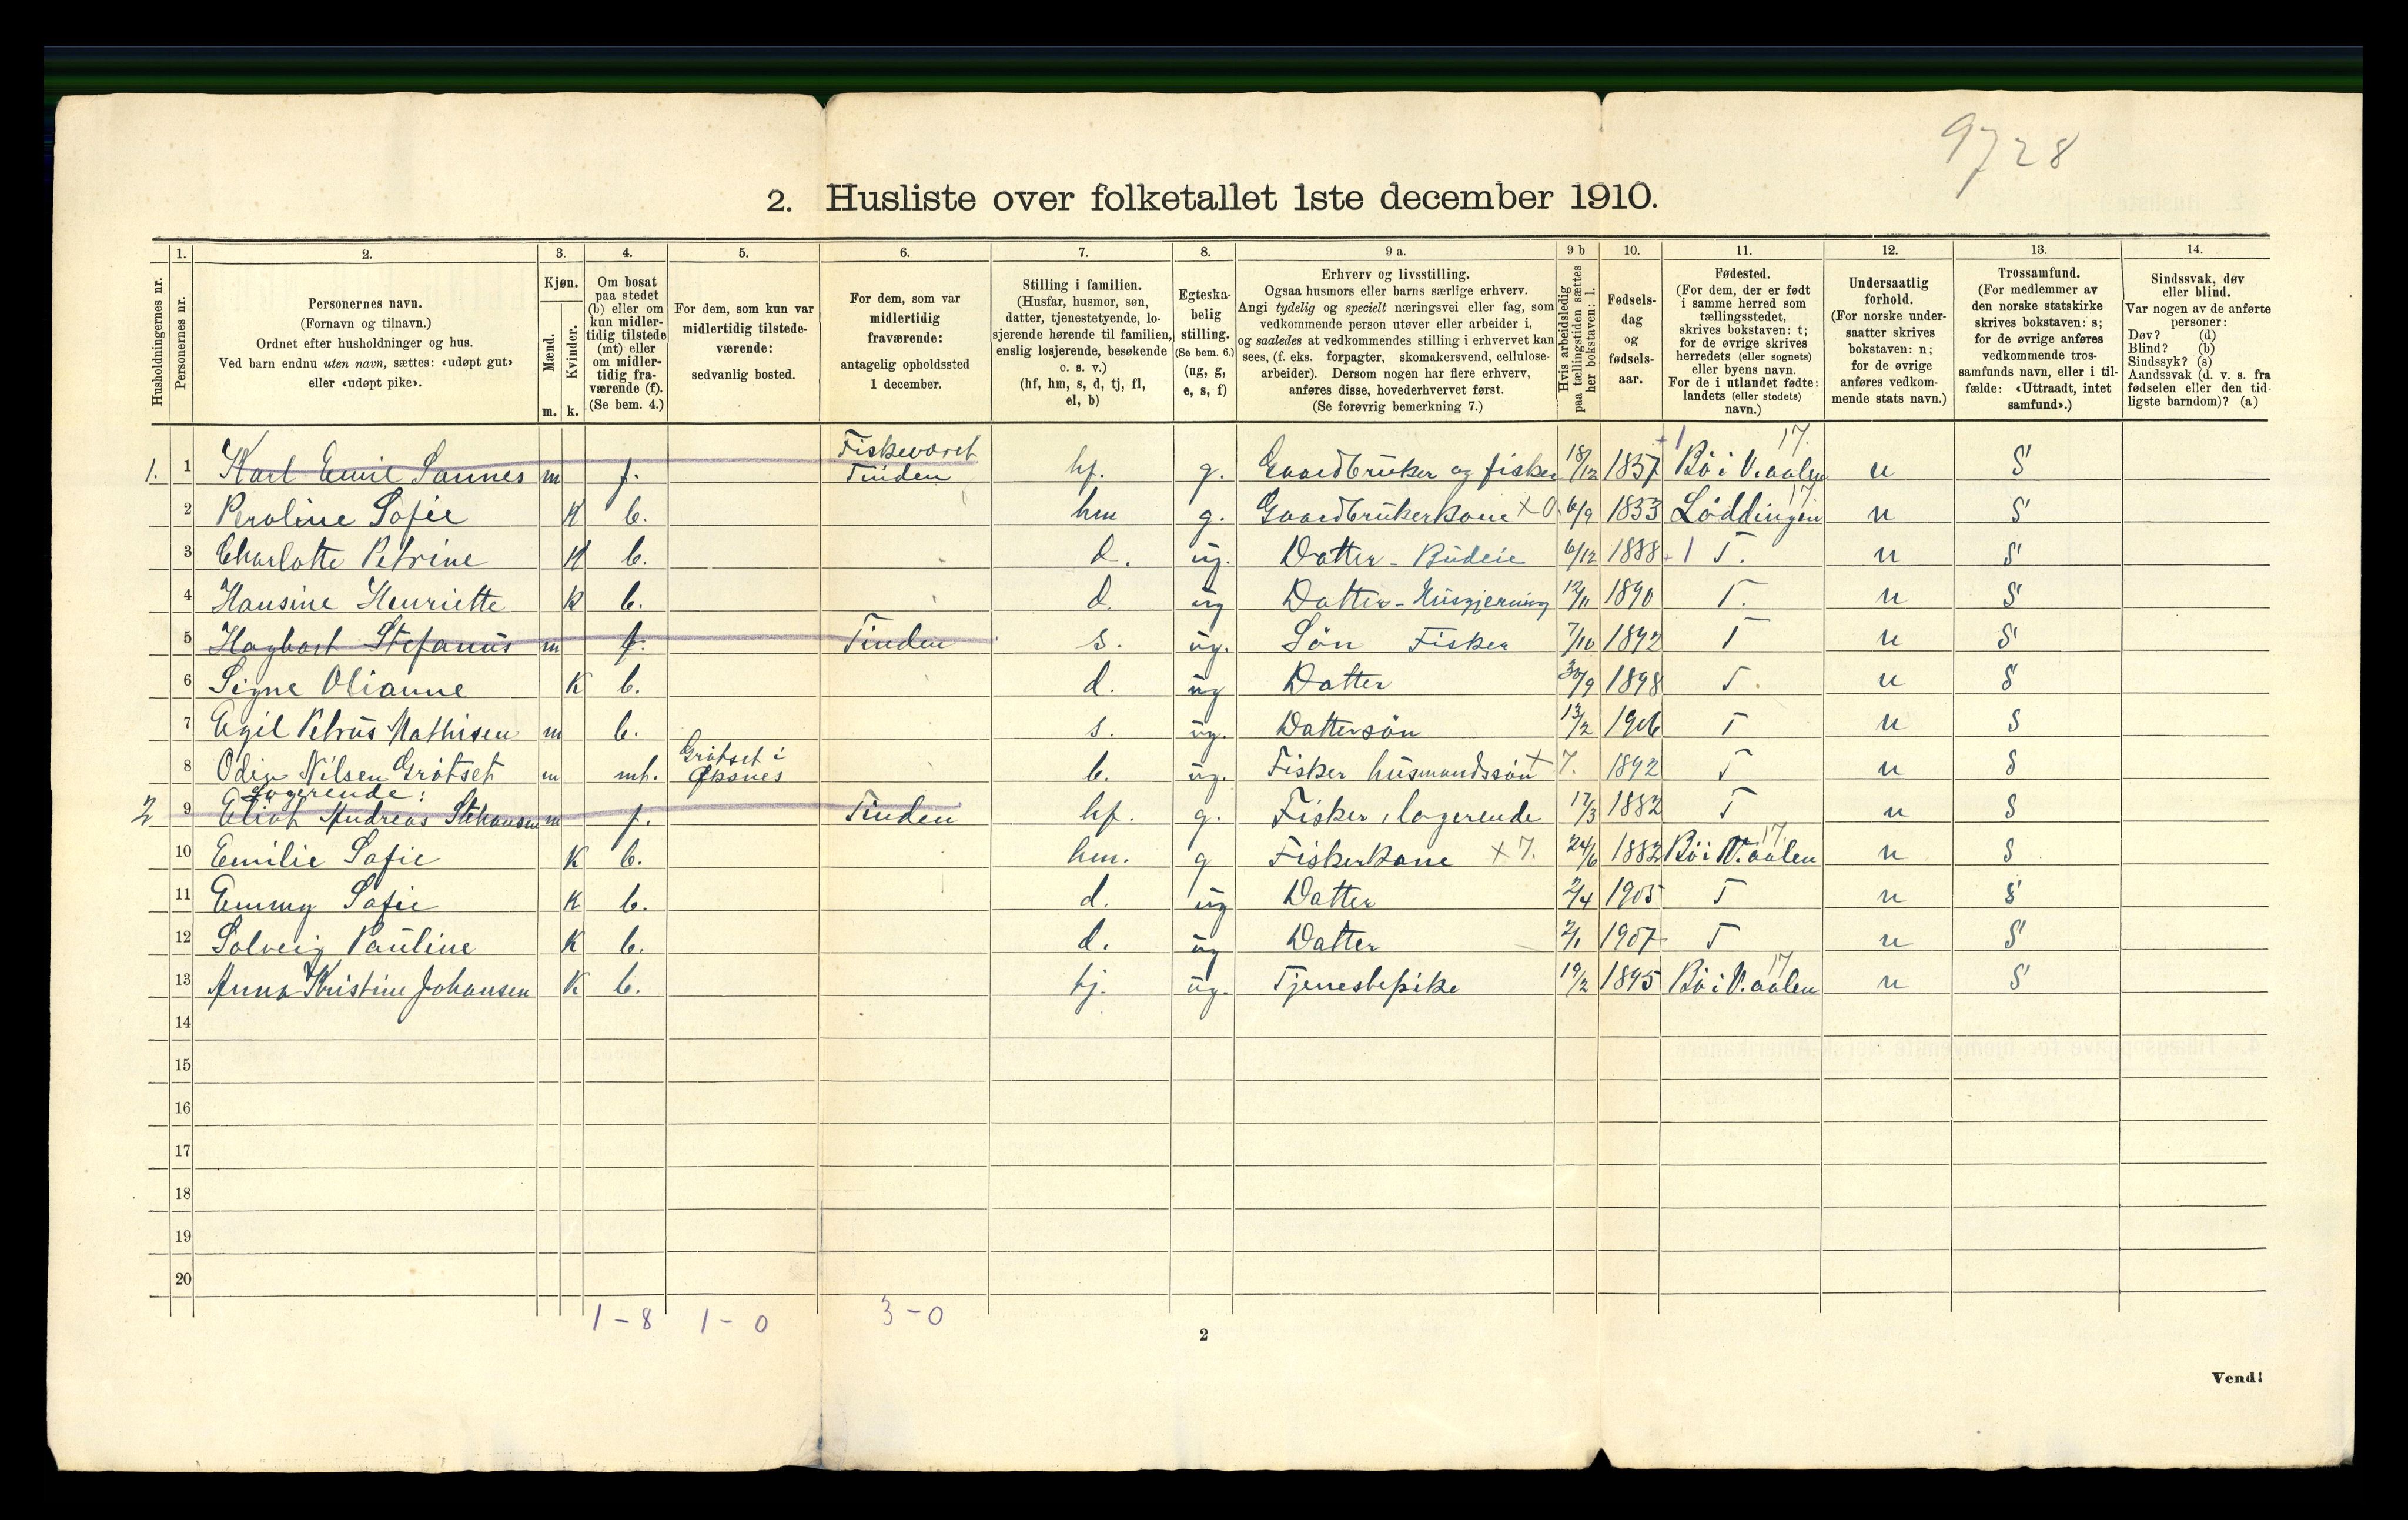 9728
2. Husliste over folketallet 1ste december 1910.
Husholdningernes nr.
1.
Personernes nr.
2.
Personernes navn.
(Fornavn og tilnavn.)
Ordnet efter husholdninger og hus.
Ved barn endnu uten navn, sættes: «udøpt gut»
eller «udøpt pike».
3.
Kjøn.
Mænd.
Kvinder.
m. k.
4.
Om bosat
paa stedet
(b) eller om
kun midler-
tidig tilstede
(mt) eller
om midler-
tidig fra-
værende (f).
(Se bem. 4.)
5.
For dem, som kun var
midlertidig tilstede-
værende:
sedvanlig bosted.
6.
For dem, som var
midlertidig
fraværende:
antagelig opholdssted
1 december.
7.
Stilling i familien.
(Husfar, husmor, søn,
datter, tjenestetyende, lo-
sjerende hørende til familien,
enslig losjerende, besøkende
o. s. v.)
(hf, hm, s, d, tj, fl,
el, b)
8.
Egteska-
belig
stilling.
(Se bem. 6.)
(ug, g,
e, s, f)
9 a.
Erhverv og livsstilling.
Ogsaa husmors eller barns særlige erhverv.
Angi tydelig og specielt næringsvei eller fag, som
vedkommende person utøver eller arbeider i,
og saaledes at vedkommendes stilling i erhvervet kan
sees, (f. eks. forpagter, skomakersvend, cellulose-
arbeider). Dersom nogen har flere erhverv,
anføres disse, hovederhvervet først.
(Se forøvrig bemerkning 7.)
9 b
Hvis arbeidsledig
paa tællingstiden sættes
her bokstaven: l.
10.
Fødsels-
dag
og
fødsels-
aar.
11.
Fødested.
(For dem, der er født
i samme herred som
tællingsstedet,
skrives bokstaven: t;
for de øvrige skrives
herredets (eller sognets)
eller byens navn.
For de i utlandet fødte:
landets (eller stedets)
navn.)
12.
Undersaatlig
forhold.
(For norske under-
saatter skrives
bokstaven: n;
for de øvrige
anføres vedkom-
mende stats navn.)
13.
Trossamfund.
(For medlemmer av
den norske statskirke
skrives bokstaven: s;
for de øvrige anføres
vedkommende tros-
samfunds navn, eller i til-
fælde: «Uttraadt, intet
samfund».)
14.
Sindssvak, døv
eller blind.
Var nogen av de anførte
personer:
Døv? (d)
Blind? (b)
Sindssyk? (s)
Aandssvak (d. v. s. fra
fødselen eller den tid-
ligste barndom)? (a)
1. 1 Karl Emil Sannes m f. Fiskeværet Tinden hf. g. Gaardbruker og fisker 18/12 1857 +1 Bø i V.aalen 17. n S
2 Peroline Sofie K b. hm g. Gaardbrukerkone x0. 6/9 1853 Løddingen 17. n S
3 Charlotte Petrine K b. d. ug. Datter - Budeie 6/12 1888 +1 T. n S
4 Hansine Henriette K b. d. ug Datter - Husgjerning 12/11 1890 T. n S
5 Hagbart Stefanus m f. Tinden s. ug. Søn Fisker 7/10 1892 T n S
6 Signe Olianne K b. d. ug Datter 30/9 1898 T. n S
7 Egil Petrus Mathisen m b. s. ug. Dattersøn 13/2 1906 T n S
8 Odin Nilsen Grøtset m mt. Grøtset i Øksnes b. ug. Fisker husmandssøn x 7. 1892 T n S
Logerende:
2 9 Andreas m f. Tinden hf. g. Fisker, logerende 17/3 1882 T n S
10 Emilie Sofie K b. hm. g Fiskerkone x7. 24/6 1882 Bø i V.aalen 17. n S
11 Emmy Sofie K b. d. ug Datter 2/4 1905 T n S
12 Solveig Pauline K b. d. ug Datter 2/1 1907 T n S
13 Anna Kristine Johansen K b. tj. ug. Tjenestepike 19/2 1895 Bø i V.aalen 17 n S
14
15
16
17
18
19
20
1 - 8 1 - 0 3 - 0
2
Vend!